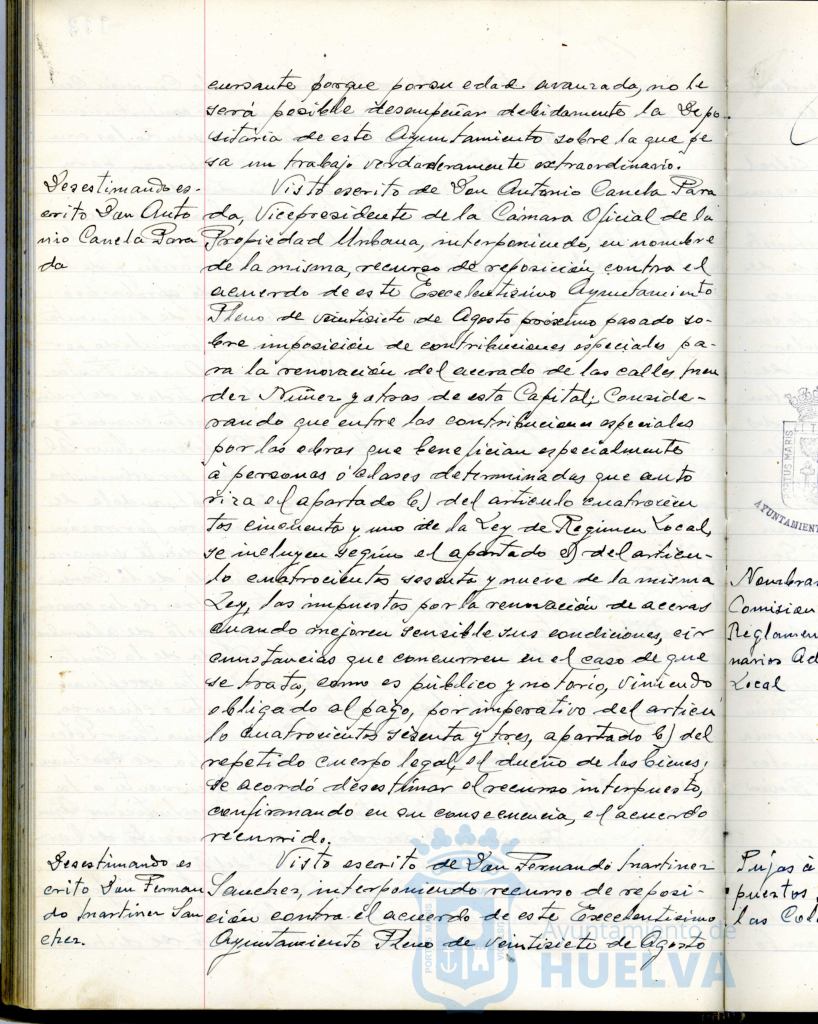 cursante porque por su edad avanzada, no le
será posible desempeñar debidamente la Depo-
sitaría de este Ayuntamiento sobre la que pe
sa un trabajo verdaderamente extraordinario.
Desestimando es-
crito Don Anto
nio Canela Para
da
Visto escrito de Don Antonio Canela Para
da, Vicepresidente de la Cámara Oficial de la
Propiedad Urbana, interponiendo, en nombre
de la misma, recurso de reposición, contra el
acuerdo de este Excelentísimo Ayuntamiento
Pleno de veintisiete de Agosto próximo pasado so-
bre imposición de contribuciones especiales pa-
ra la renovación del acerado de las calles Men
dez Nuñez y otras de esta Capital; Conside-
rando que entre las contribuciones especiales
por las obras que benefician especialmente
á personas ó clases determinadas que auto
riza el apartado b) del articulo cuatrocien
tos cincuenta y uno de la Ley de Regimen Local,
se incluyen según el apartado e) del articu-
lo cuatrocientos sesenta y nueve de la misma
Ley, las impuestas por la renovación de aceras
cuando mejoren sensible sus condiciones, cir
cunstancias que concurren en el caso de que
se trata, como es público y notorio, viniendo
obligado al pago, por imperativo del articu
lo cuatrocientos sesenta y tres, apartado b) del
repetido cuerpo legal, el dueño de los bienes;
se acordó desestimar el recurso interpuesto,
confirmando en su consecuencia, el acuerdo
recurrido.
Desestimando es
crito Don Fernan
do Martinez San
chez.
Visto escrito de Don Fernando Martinez
Sanchez, interponiendo recurso de reposi-
ción contra el acuerdo de este Excelentisimo
Ayuntamiento Pleno de veintisiete de Agosto
PORTUS MARIS
AYUNTAMIENT
Comision
Local
Pujas á
puestos
las
Ayuntamiento de
HUELVA